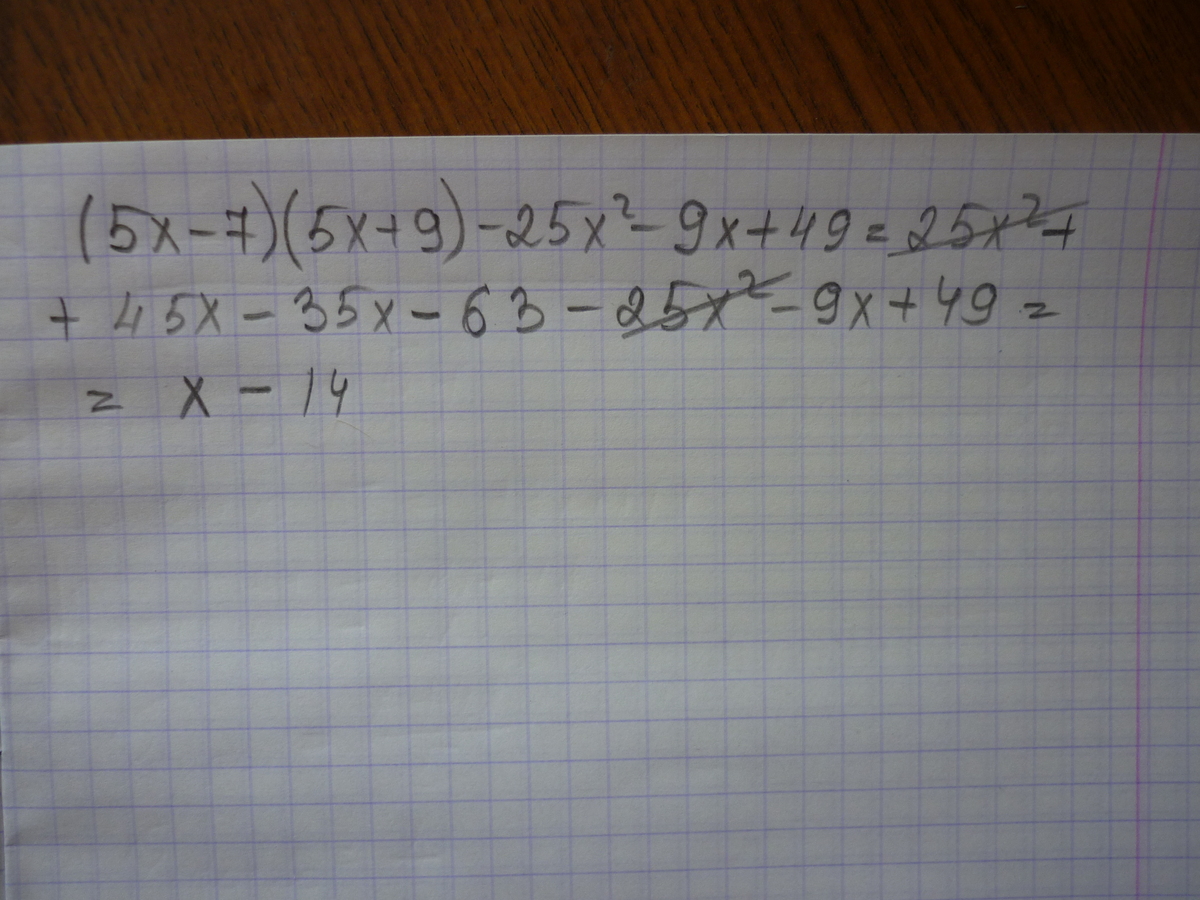 (5x-7)(5x+9)-25x²-9x+49=25x²+
+45x-35x-63-25x²-9x+49=
= x-14